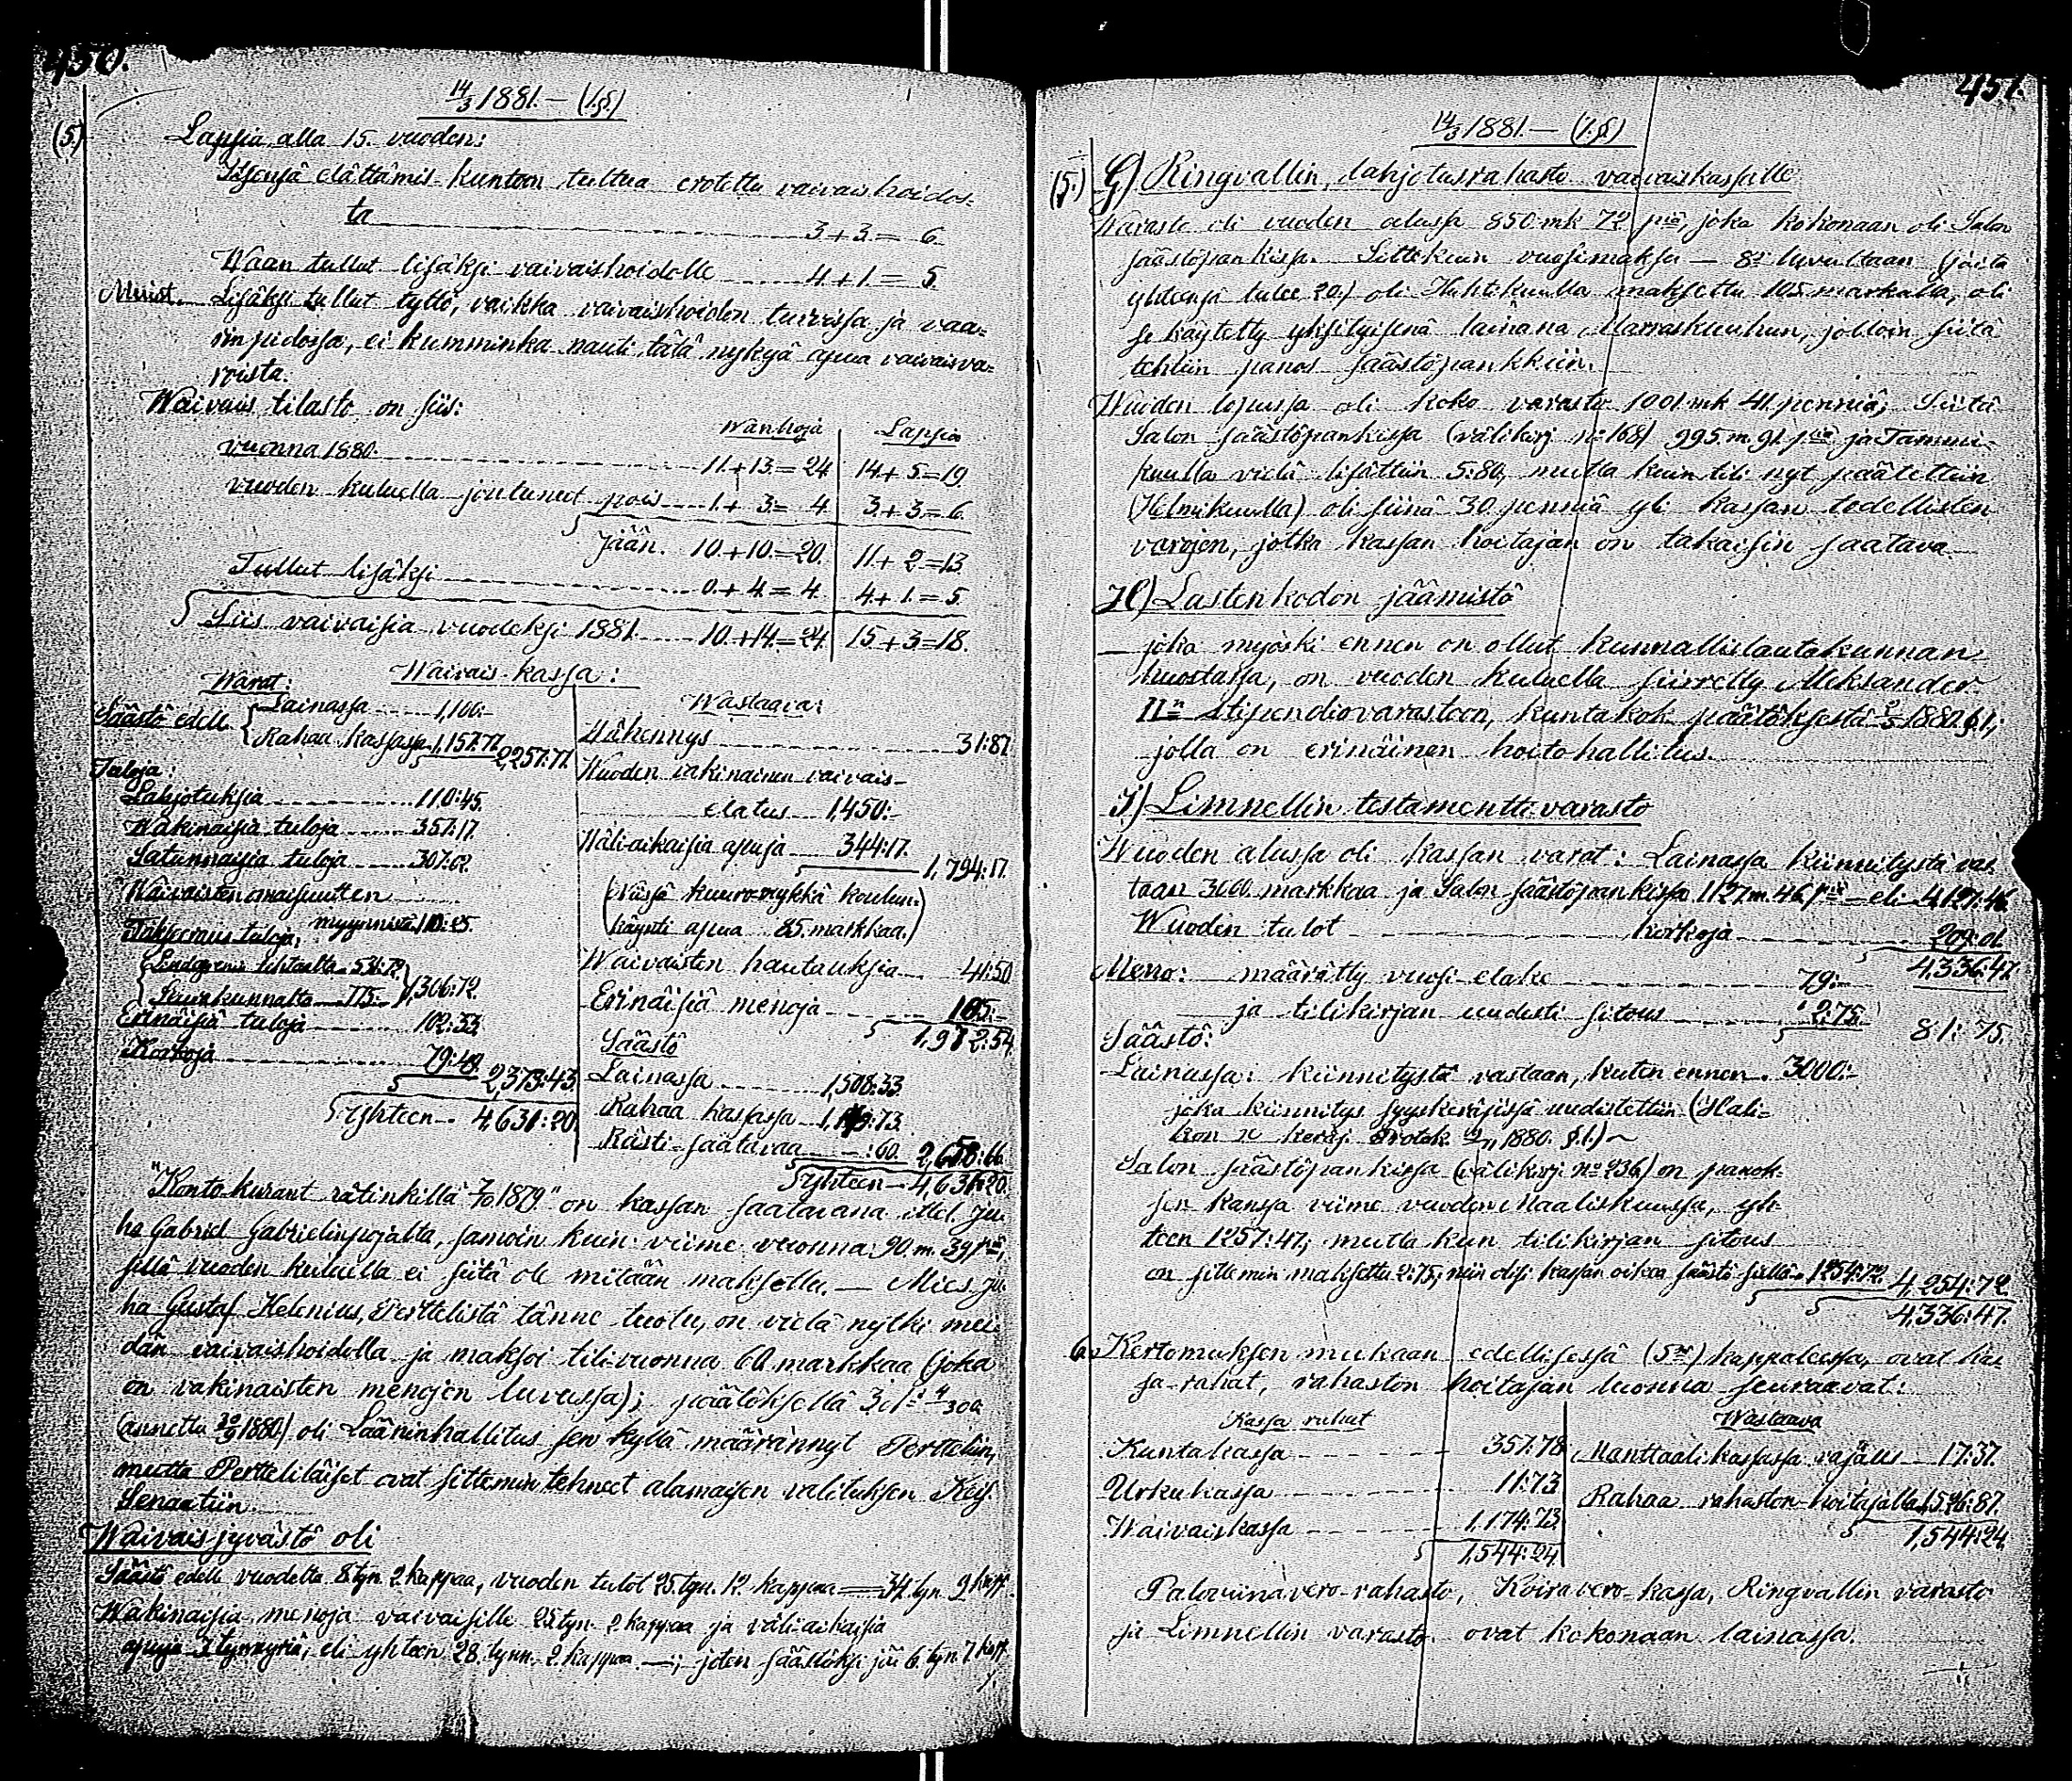 450.
14/3 1881. — (1.§)
(5.)
Lapsia, alla 15. vuoden:
Itsensä elättämis-kuntoon tultua erotettu vaivaishoidos-
ta 3 + 3 = 6.
Waan tullut lisäksi vaivaishoidolle 4 + 1 = 5.
Muist. Lisäksi tullut tyttö, vaikka vaivaishoidon turvissa ja vaa-
rin pidossa, ei kumminka nauti tätä nykyä apua vaivaisva-
roista.
Waivais tilasto on siis:
Wanhoja Lapsia
vuonna 1880. 11 + 13 = 24 14 + 5 = 19
vuoden kuluella joutuneet pois 1 + 3 = 4 3 + 3 = 6.
Jään. 10. + 10. = 20. 11 + 2 = 13
Tullut lisäksi 0 + 4 = 4. 4 + 1 = 5.
Siis vaivaisia vuodeksi 1881. 10. + 14. = 24. 15 + 3 = 18.
Waivais-kassa:
Warat:
Säästö edell. Lainassa 1,100:-
Rahaa kassassa 1,157:77. 2,257:77.
Tuloja:
Lahjotuksia 110:45.
Wakinaisia tuloja 357:17.
Satunnaisia tuloja 307:02.
Waivaisten omaisuutten
myynnistä 110:25.
Lindgrenin tehtaalta 531:72
Seurakunnalta 775:- 1,306:72.
Erinäisiä tuloja 102:33
Korkoja 79:49. 2,373:43.
Yhteen 4,631:20.
Wastaava:
Wähennys 31:87.
Wuoden vakinainen vaivais-
elatus 1,450:-
Wäli-aikaisia apuja 344:17. 1,794:17.
(näissä kuuro-mykkä koulun-
käynti apua 85. markkaa.)
Waivaisten hautauksia 41:50
Erinäisiä menoja 105:-
1,972:54.
Säästö
Lainassa 1,508:33
Rahaa kassassa
Rästi-saatavaa :60. 2,658:66.
Yhteen 4,631:20.
"Konto-kurant rätinkillä 1879" on kassan saatavana Ju-
ha Gabriel Gabrielinpojalta, samoin kuin viime vuonna 90. m. 39 p:iä,
sillä vuoden kuluella ei siitä ole mitään maksettu. — Mies Ju-
ha Gustaf Helenius, Perttelistä tänne tuotu, on vielä nytki mei-
dän vaivaishoidolla ja maksoi tili-vuonna 60 markkaa (joka
on vakinaisten menojen luvussa); päätöksellä
(annettu 1880) oli Lääninhallitus sen kyllä määrännyt Pertteliin,
mutta Perttelildiset ovat sittemmin tehneet alamaisen valituksen Keis.
Senaatiin.
Waivaisjyvästö oli
Säästö edell. vuodelta 8 tyn. 2 kappaa, vuoden tulot 25. tyn. 12. kappaa = 34 tyn. 2 kapp.
Wakinaisia menoja vaivaisille 25 tyn. 2 kappaa ja väli-aikaisia
apuja 3 tynnyriä, eli yhteen 28. tynn. 2. kappaa. —; joten säästöksi jäi 6. tyn 7 kapp.
451.
14/3 1881. — (1.§)
(5.) G) Ringvallin, lahjotusrahasto vaivaiskassalle
Warasto oli vuoden alussa 850 mk 72 p:iä, joka kokonaan oli Salon
säästöpankissa. Sittekuin vuosimaksu — 8:s luvultaan (joita
yhteensä tulee 20.) oli Huhtikuulla maksettu 105 markalla, oli
se käytetty yksityisenä lainana Marraskuuhun, jolloin siitä
tehtiin panos säästöpankkiin.
Wuoden lopussa oli koko varasto 1001 mk 41. penniä; Siitä
Salon säästöpankissa (välikirj. n:o 168) 995. m. 91. p:iä ja Tammi-
kuulla vielä lisättiin 5:80, mutta kuin tili nyt päätettiin
(Helmikuulla) oli siinä 30 penniä yli kassan todellisten
varojen, jotka kassan hoitajan on takaisin saatava
H) Lastenkodon jäämistö
— joka myöski ennen on ollut kunnallislautakunnan
huostassa, on vuoden kuluella siirretty Aleksander
II:n Stipendiovarastoon, kuntakok. päätöksestä 1880 §.1.;
jolla on erinäinen hoitohallitus.
I) Limnellin testamentti-varasto
Wuoden alussa oli kassan varat: Lainassa kiinnitystä vas-
taan 3000 markkaa ja Salon säästöpankissa 1127 m. 46 p:iä — eli 4,127:46
Wuoden tulot korkoja 209:01.
4,336:47.
Meno: määrätty vuosi-elake 79:-
ja tilikirjan uudesti sitous 2:75. 81:75.
Säästö:
Lainassa: kiinnitystä vastaan, kuten ennen. 3000:-
joka kiinnitys syyskeräjissä uudistettiin (Hali-
kon keräj. Protok. 1880. §.1.)
Salon säästöpankissa (välikirj. n:o 236) on panok-
sen kanssa viime vuoden Maaliskuussa, yh-
teen 1257:47; mutta kun tilikirjan sitous
on sittemmin maksettu 2:75, niin olisi kassan oikea säästö siellä 1254:72. 4,254:72.
4,336:47.
6. Kertomuksen mukaan edellisessä (5:ssä) kappaleessa, ovat kas-
sa-rahat, rahaston hoitajan luonna seuraavat:
Kassa rahat
Kuntakassa 357:78
Urkukassa 11:73
Waivaiskassa 1,174:73.
1,544:24.
Wastaava
Manttaali-kassassa vajaus 17:37.
Rahaa rahaston-hoitajalla 1,526:87.
1,544:24.
Paloviinavero-rahasto, Koiravero-kassa, Ringvallin varasto
ja Limnellin varasto ovat kokonaan lainassa.